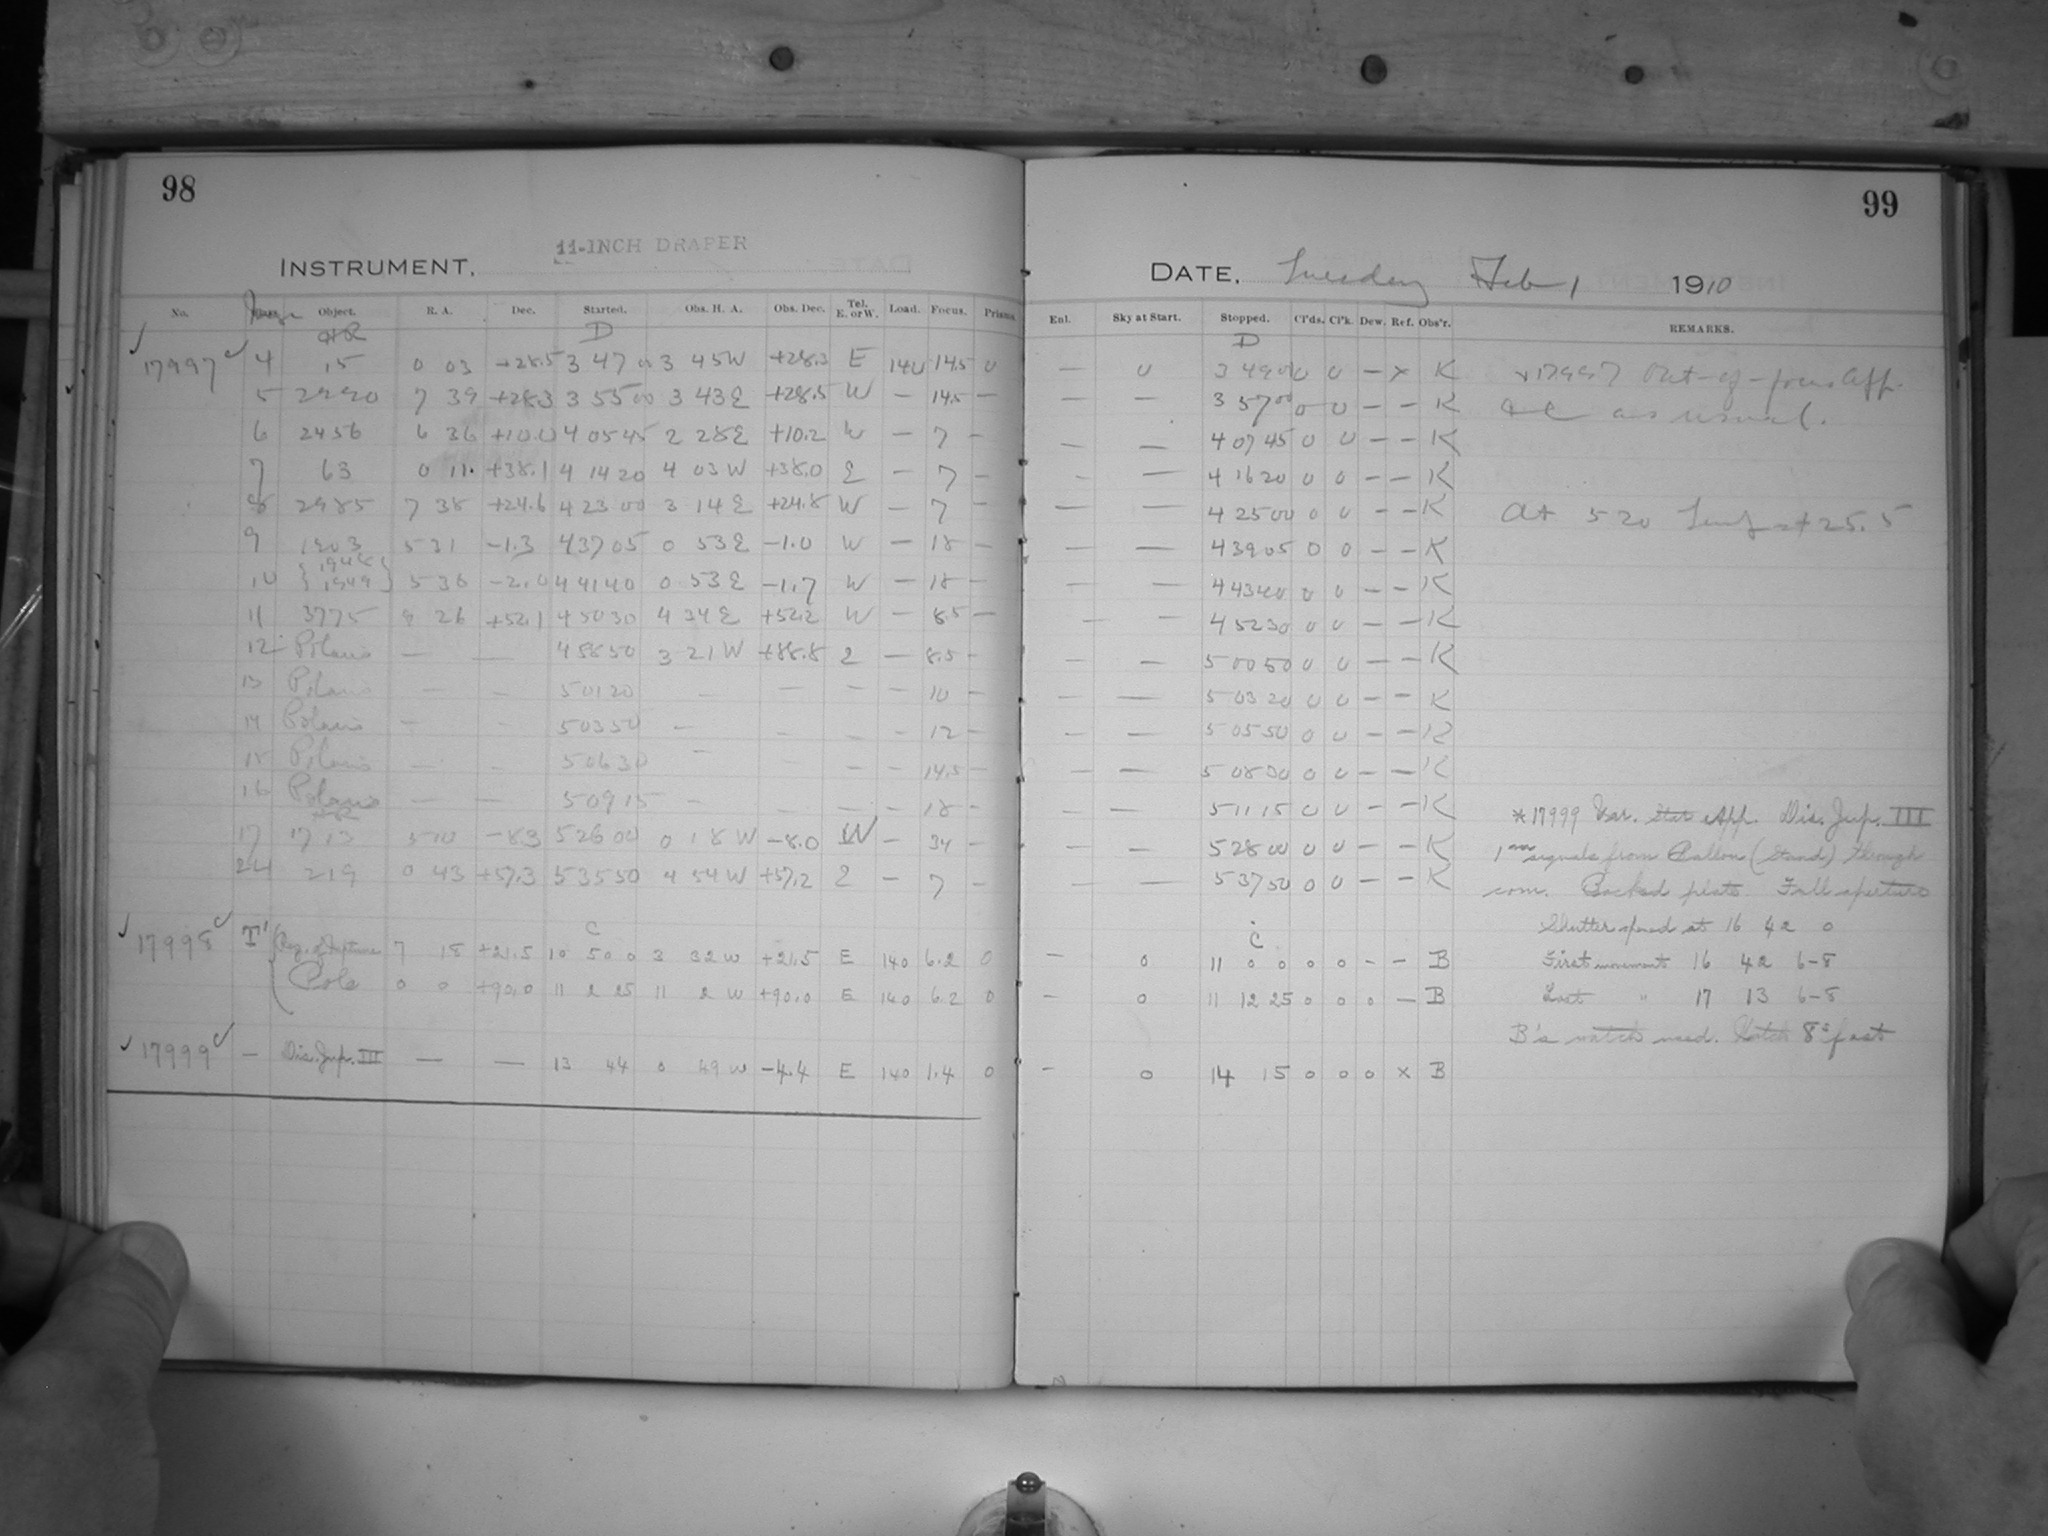 98
11-INCH DRAPER
INSTRUMENT.
No. Class. Image Object. R. A. Dec. Started. Obs. H. A. Obs. Dec. Tel. E. or W. Load. Focus. Prisms.
HR D
17997 4 15 0 03 +28.5 3 47 00 3 45 W +28.3 E 140 14.5 0
5 2990 7 39 +28.3 3 55 00 3 43 E +28.5 W — 14.5 —
6 2456 6 36 +10.0 4 05 45 2 28 E +10.2 W — 7 —
7 63 0 11 +38.1 4 14 20 4 03 W +38.0 E — 7 —
8 2985 7 38 +24.6 4 23 00 3 14 E +24.8 W — 7 —
9 1903 5 31 -1.3 4 37 05 0 53 E -1.0 W — 18 —
10 {1948 1949} 5 36 -2.0 4 41 40 0 53 E -1.7 W — 18 —
11 3775 9 26 +52.1 4 50 30 4 34 E +52.2 W — 8.5 —
12 Polaris — — 4 58 50 3 21 W +88.8 E — 8.5 —
13 Polaris — — 5 01 20 — — — — 10 —
14 Polaris — — 5 03 50 — — — — 12 —
15 Polaris — — 5 06 30 — — — — 14.5 —
16 Polaris — — 5 09 15 — — — — 18 —
HR
17 1713 5 10 -8.3 5 26 00 0 18 W -8.0 W — 34 —
24 219 0 43 +57.3 5 35 50 4 54 W +57.2 E — 7 —
C
17998 T' Reg. of Neptune 7 18 +21.5 10 50 0 3 32 W +21.5 E 140 6.2 0
Pole 0 0 +90.0 11 2 25 11 2 W +90.0 E 140 6.2 0
17999 — Dis. Jup. III — — 13 44 0 49 W -4.4 E 140 1.4 0
99
DATE, Tuesday Feb 1 1910
Enl. Sky at Start. Stopped. Cl'ds. Cl'k. Dew. Ref. Obs'r. REMARKS.
D
— 0 3 49 00 0 0 — x K x17997 Out-of-focus App.
— — 3 57 00 0 0 — — K as usual.
— — 4 07 45 0 0 — — K
— — 4 16 20 0 0 — — K
— — 4 25 00 0 0 — — K At 5 20 Temp at 25.5
— — 4 39 05 0 0 — — K
— — 4 43 40 0 0 — — K
— — 4 52 30 0 0 — — K
— — 5 00 50 0 0 — — K
— — 5 03 20 0 0 — — K
— — 5 05 50 0 0 — — K
— — 5 08 30 0 0 — — K
— — 5 11 15 0 0 — — K
*17999 Var. Star App. Dis. Jup. III
— — 5 28 00 0 0 — — K
signals from (Stand) through
— — 5 37 50 0 0 — — K
com. Backed plate. Full aperture
Shutter opened at 16 42 0
C
— 0 11 0 0 0 0 — — B First movement 16 42 6-8
— 0 11 12 25 0 0 0 — B Last " 17 13 6-8
B's watch used. Watch 8s fast
— 0 14 15 0 0 0 x B